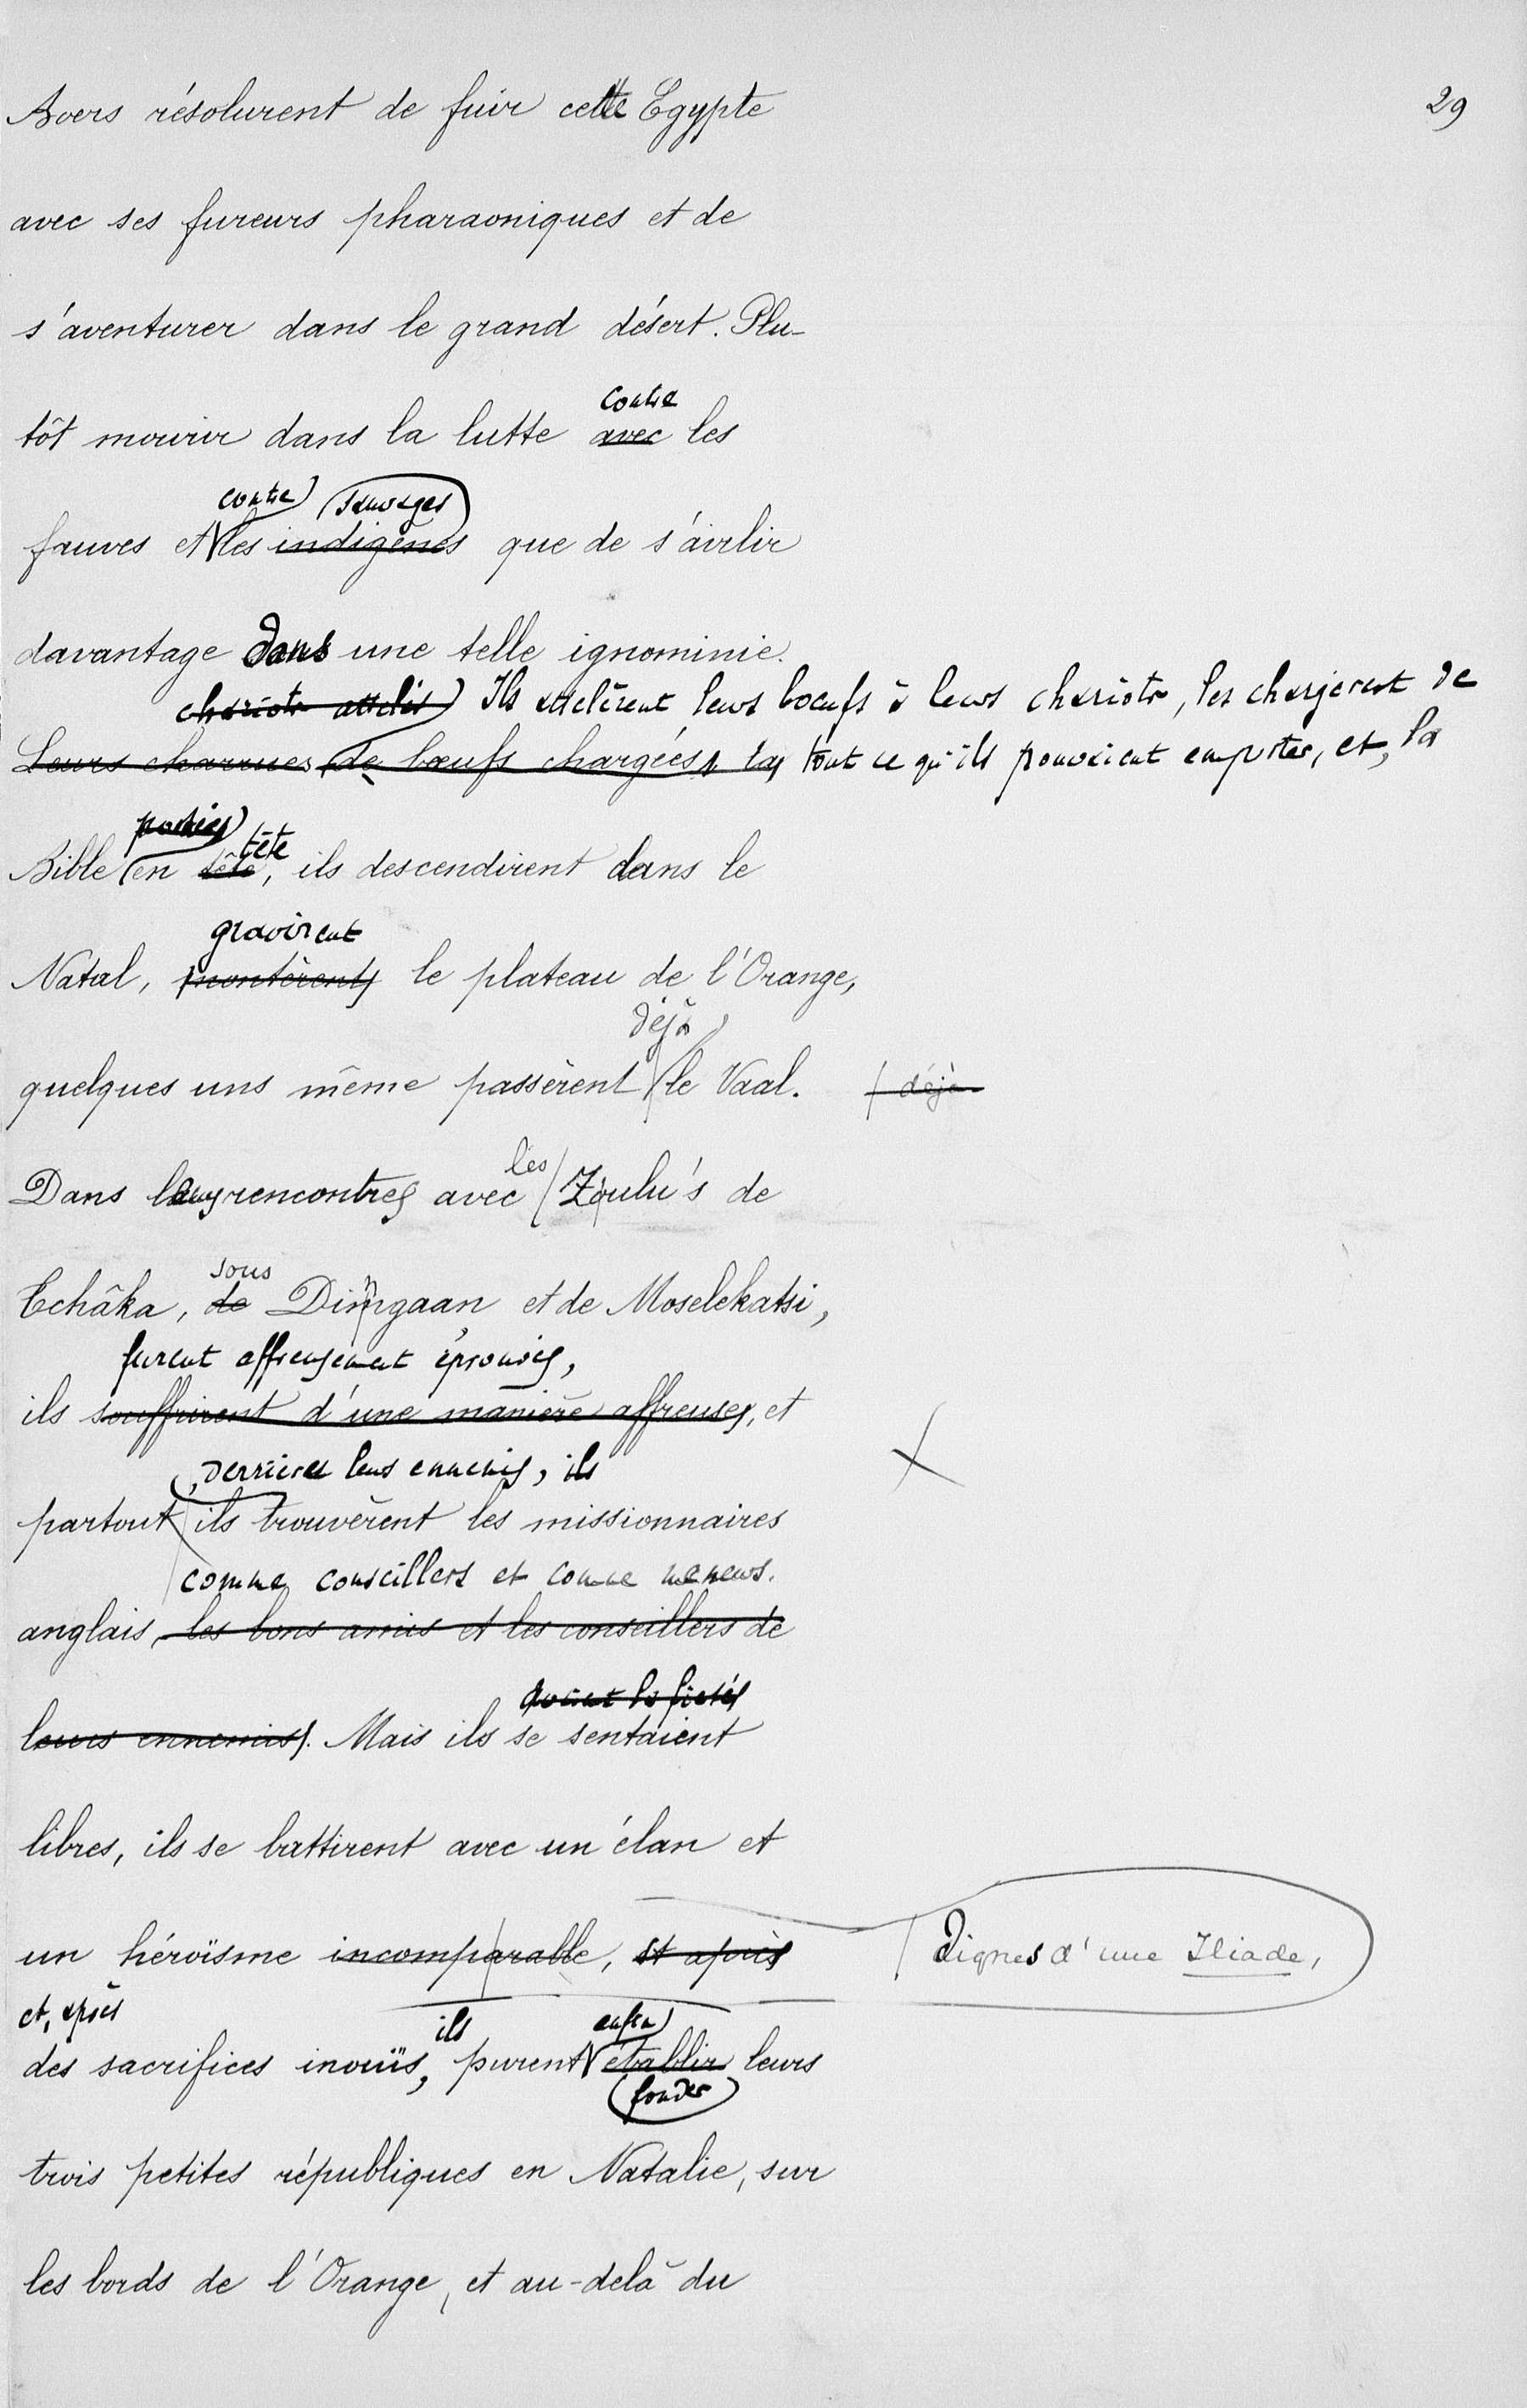 29
Boers résolurent de fuir cette Egypte
avec ses fureurs pharaoniques et de
s'aventurer dans le grand désert. Plu-
contre
tôt mourir dans la lutte avec les
contre sauvages
fauves et les indigènes que de s'avilir
davantage dans une telle ignominie.
chariots attelés Ils attelèrent leurs boeufs à leurs chariots, les chargerent de
Leurs charrues de boeufs chargées, la tout ce qu'ils pouvaient emporter, et, la
tête
Bible en tête, ils descendirent dans le
gravirent
Natal, montèrent le plateau de l'Orange,
déjà
quelques uns même passèrent le Vaal. déjà
les
Dans leurs rencontres avec Zoulu's de
sous
Tchâka, de Dingaan et de Moselekatsi,
furent affreusement éprouvés,
ils souffrirent d'une manière affreuse, et
derrière leurs ennemis, ils
partout ils trouvèrent les missionnaires
comme conseillers et comme meneurs.
anglais, les bons amis et les conseillers de
leurs ennemis. Mais ils se sentaient
libres, ils se battirent avec un élan et
un héroïsme incomparable, et après dignes d'une Iliade,
et, après ils enfin
des sacrifices inouïs, purent établir leurs
fonder
trois petites républiques en Natalie, sur
les bords de l'Orange, et au-delà du